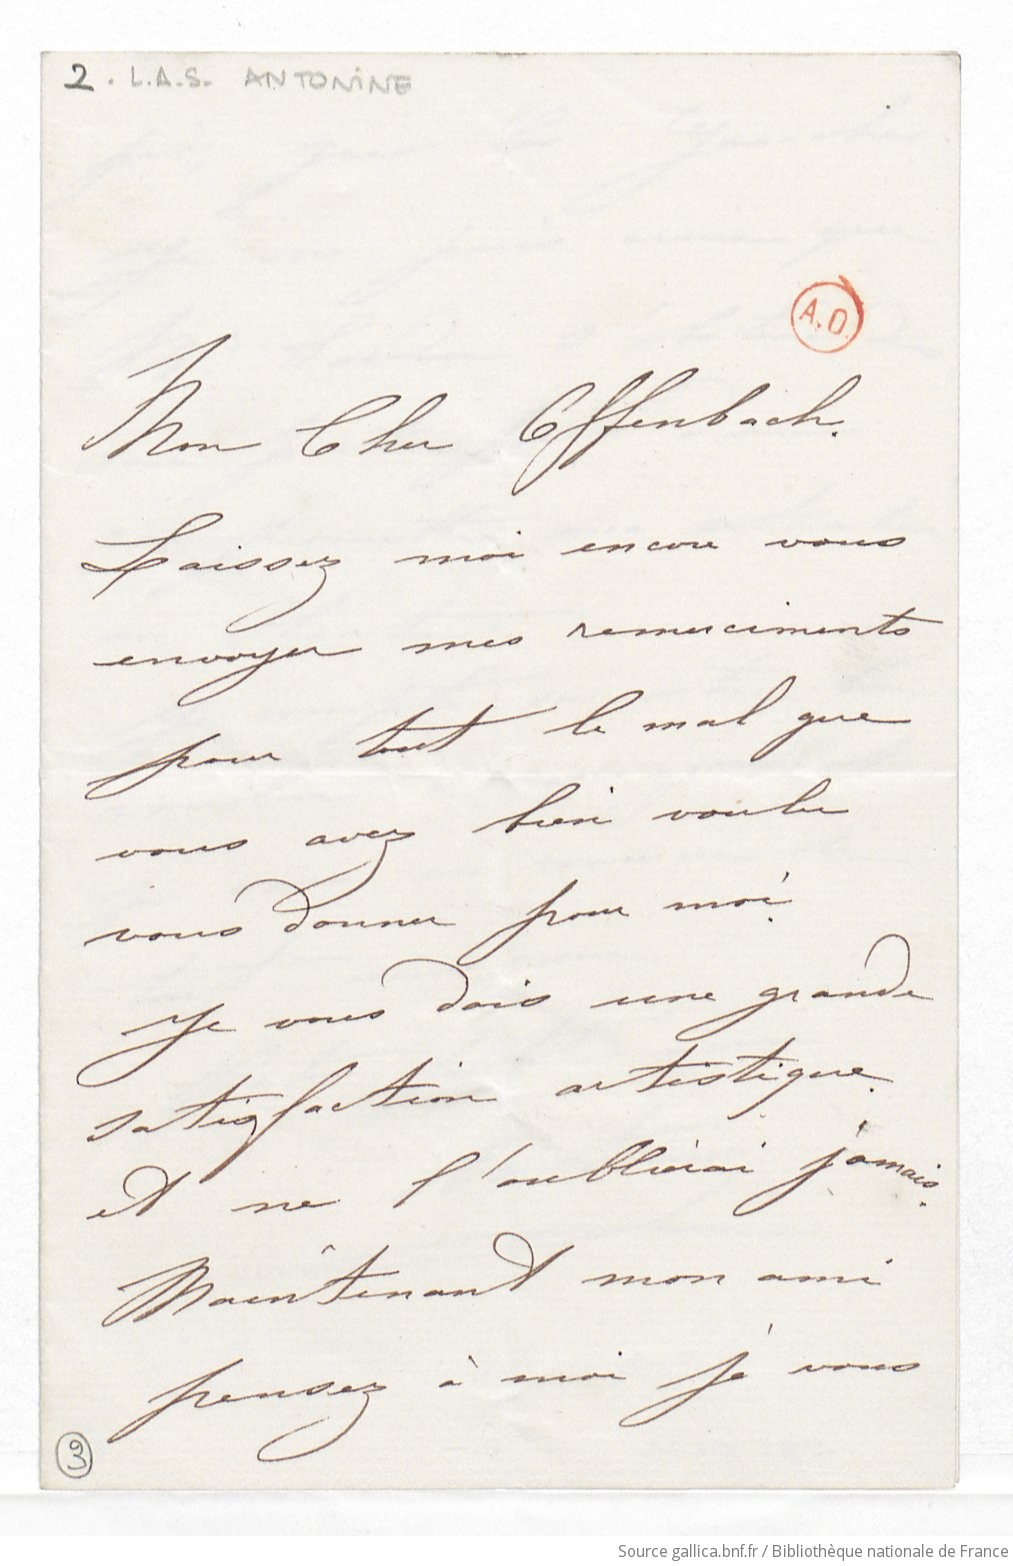 2. L.A.S. ANTONINE
A.O.
Mon Cher Offenbach.
Laissez moi encore vous
envoyer mes remerciments
pour tout le mal que
vous avez bien voulu
vous donner pour moi.
Je vous dois une grande
satisfaction artistique.
et ne l'oublierai jamais.
Maintenant mon ami
pensez à moi je vous
3
Source gallica.bnf.fr / Bibliothèque nationale de France